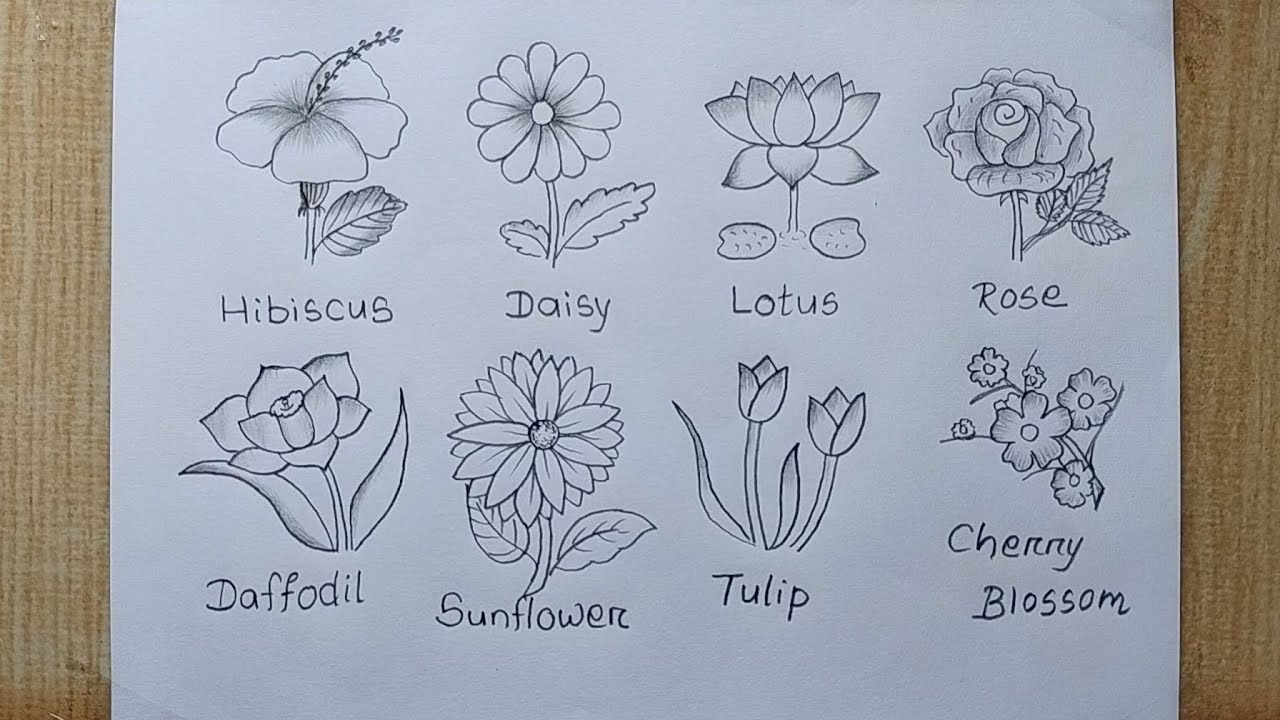 Hibiscus
Daisy
Lotus
Rose
Daffodil
Sunflower
Tulip
Cherry
Blossom